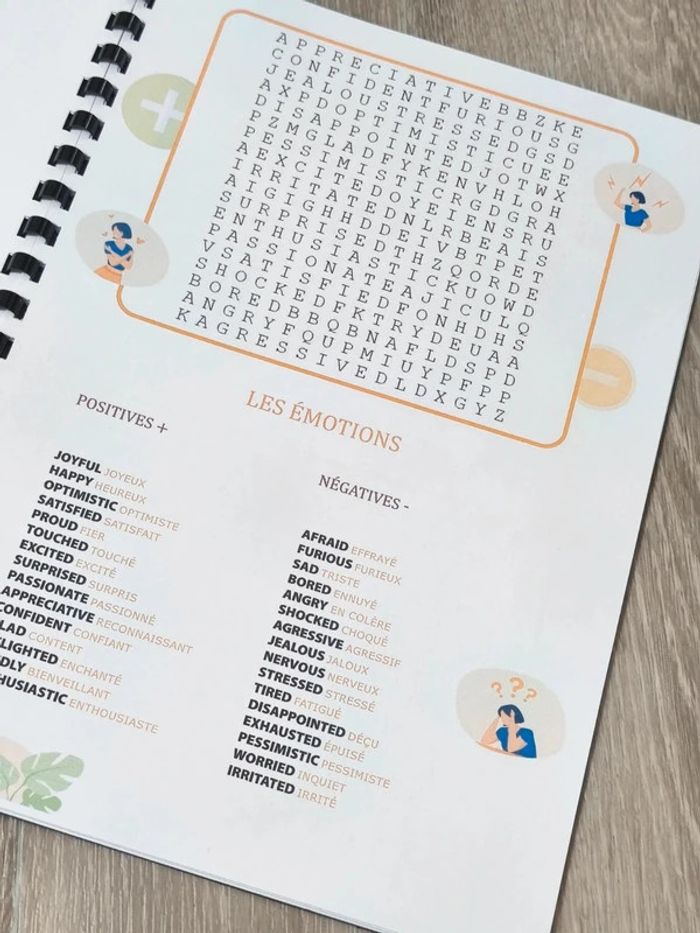 APPRECIATIVEBBZKE
CONFIDENTFURIOUSG
JEALOUSTRESSEDGED
AXPDOPTIMISTICUEE
DISAPPOINTEDJOTWX
PZMGLADFYKENVHLOH
PESSIMISTICRGDGRA
AEXCITEDOYEIENSRU
IRRITATEDNLRBEAIS
AIGIGHHDDEIVBTPET
SURPRISEDTHZQORDE
ENTHUSIASTICKUOWD
PASSIONATEAJICULQ
VSATISFIEDFONHDHS
SHOCKEDFKTRYDEUAA
BOREDBBQBNAFLDSPD
ANGRYFQUPMIUYPFPP
KAGRESSIVEDLDXGYZ
LES ÉMOTIONS
POSITIVES +
JOYFUL JOYEUX
HAPPY HEUREUX
OPTIMISTIC OPTIMISTE
SATISFIED SATISFAIT
PROUD FIER
TOUCHED TOUCHÉ
EXCITED EXCITÉ
SURPRISED SURPRIS
PASSIONATE PASSIONNÉ
APPRECIATIVE RECONNAISSANT
CONFIDENT CONFIANT
LAD CONTENT
LIGHTED ENCHANTÉ
DLY BIENVEILLANT
HUSIASTIC ENTHOUSIASTE
NÉGATIVES -
AFRAID EFFRAYÉ
FURIOUS FURIEUX
SAD TRISTE
BORED ENNUYÉ
ANGRY EN COLÈRE
SHOCKED CHOQUÉ
AGRESSIVE AGRESSIF
JEALOUS JALOUX
NERVOUS NERVEUX
STRESSED STRESSÉ
TIRED FATIGUÉ
DISAPPOINTED DÉÇU
EXHAUSTED ÉPUISÉ
PESSIMISTIC PESSIMISTE
WORRIED INQUIET
IRRITATED IRRITÉ
? ? ?